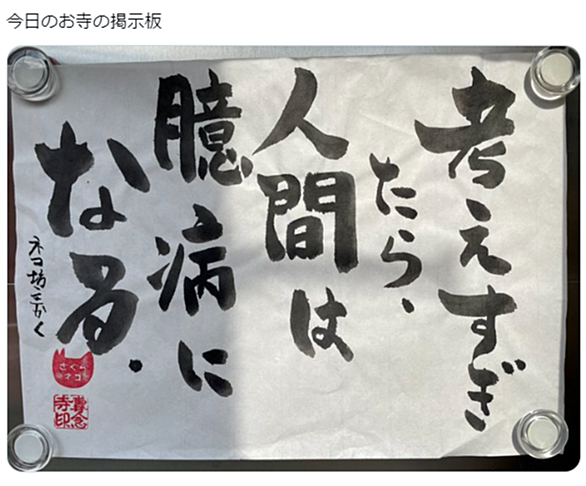 今日のお寺の掲示板
考えすぎ
たら、
人間は
臆病に
なる.
ネコ坊主かく
さくら
ネコ